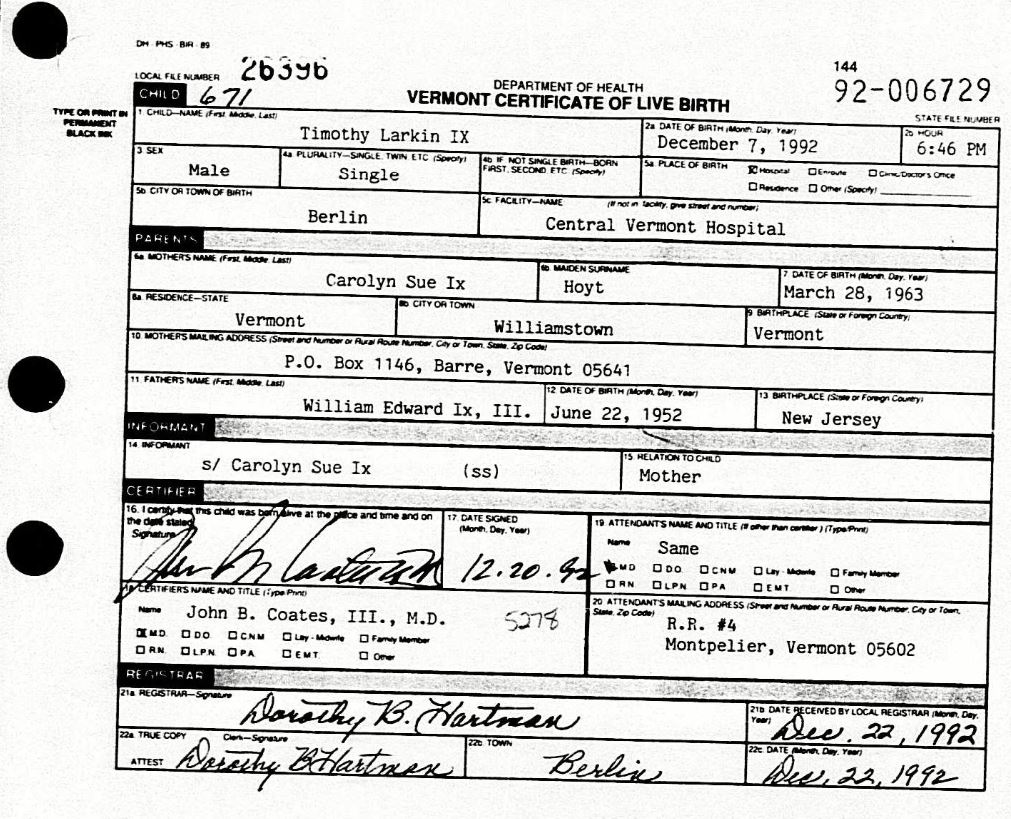 DH - PHS - BIR - 89
LOCAL FILE NUMBER 26396
144
DEPARTMENT OF HEALTH
92-006729
CHILD 671
VERMONT CERTIFICATE OF LIVE BIRTH
STATE FILE NUMBER
TYPE OR PRINT IN
PERMANENT
BLACK INK
1. CHILD—NAME (First, Middle, Last)
Timothy Larkin IX
2a DATE OF BIRTH (Month, Day, Year)
December 7, 1992
2b HOUR
6:46 PM
3 SEX
Male
4a PLURALITY—SINGLE, TWIN, ETC (Specify)
Single
4b IF NOT SINGLE BIRTH—BORN
FIRST, SECOND, ETC. (Specify)
5a PLACE OF BIRTH
Hospital Enroute Clinic/Doctor's Office
Residence Other (Specify)
5b CITY OR TOWN OF BIRTH
Berlin
5c FACILITY—NAME (If not in facility, give street and number)
Central Vermont Hospital
PARENTS
6a MOTHER'S NAME (First, Middle, Last)
Carolyn Sue Ix
6b MAIDEN SURNAME
Hoyt
7 DATE OF BIRTH (Month, Day, Year)
March 28, 1963
8a RESIDENCE—STATE
Vermont
8b CITY OR TOWN
Williamstown
9 BIRTHPLACE (State or Foreign Country)
Vermont
10 MOTHER'S MAILING ADDRESS (Street and Number or Rural Route Number, City or Town, State, Zip Code)
P.O. Box 1146, Barre, Vermont 05641
11. FATHER'S NAME (First, Middle, Last)
William Edward Ix, III.
12 DATE OF BIRTH (Month, Day, Year)
June 22, 1952
13 BIRTHPLACE (State or Foreign Country)
New Jersey
INFORMANT
14 INFORMANT
s/ Carolyn Sue Ix (ss)
15 RELATION TO CHILD
Mother
CERTIFIER
16. I certify that this child was born alive at the place and time and on
the date stated
Signature
17 DATE SIGNED
(Month, Day, Year)
12.20.92
19 ATTENDANT'S NAME AND TITLE (If other than certifier) (Type/Print)
Name Same
M.D. D.O. C.N.M. Lay - Midwife Family Member
R.N. L.P.N. P.A. E.M.T. Other
18 CERTIFIER'S NAME AND TITLE (Type/Print)
Name John B. Coates, III., M.D. 5278
M.D. D.O. C.N.M. Lay - Midwife Family Member
R.N. L.P.N. P.A. E.M.T. Other
20 ATTENDANT'S MAILING ADDRESS (Street and Number or Rural Route Number, City or Town,
State, Zip Code)
R.R. #4
Montpelier, Vermont 05602
REGISTRAR
21a REGISTRAR—Signature
Dorothy B. Hartman
21b DATE RECEIVED BY LOCAL REGISTRAR (Month, Day,
Year)
Dec. 22, 1992
22a TRUE COPY Clerk—Signature
ATTEST Dorothy B Hartman
22b TOWN
Berlin
22c DATE (Month, Day, Year)
Dec, 22, 1992